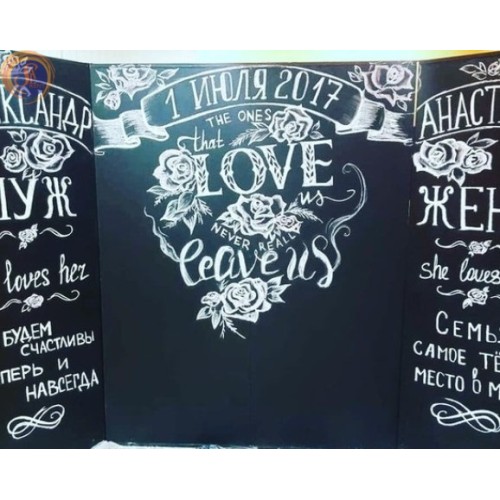 КСАНДР
МУЖ
loves her
БУДЕМ
СЧАСТЛИВЫ
ПЕРЬ И
НАВСЕГДА
1 ИЮЛЯ 2017
THE ONES
that
LOVE
us
NEVER REALLY
leave us
АНАСТ
ЖЕН
she loves
СЕМЬ
САМОЕ ТЁ
МЕСТО В М